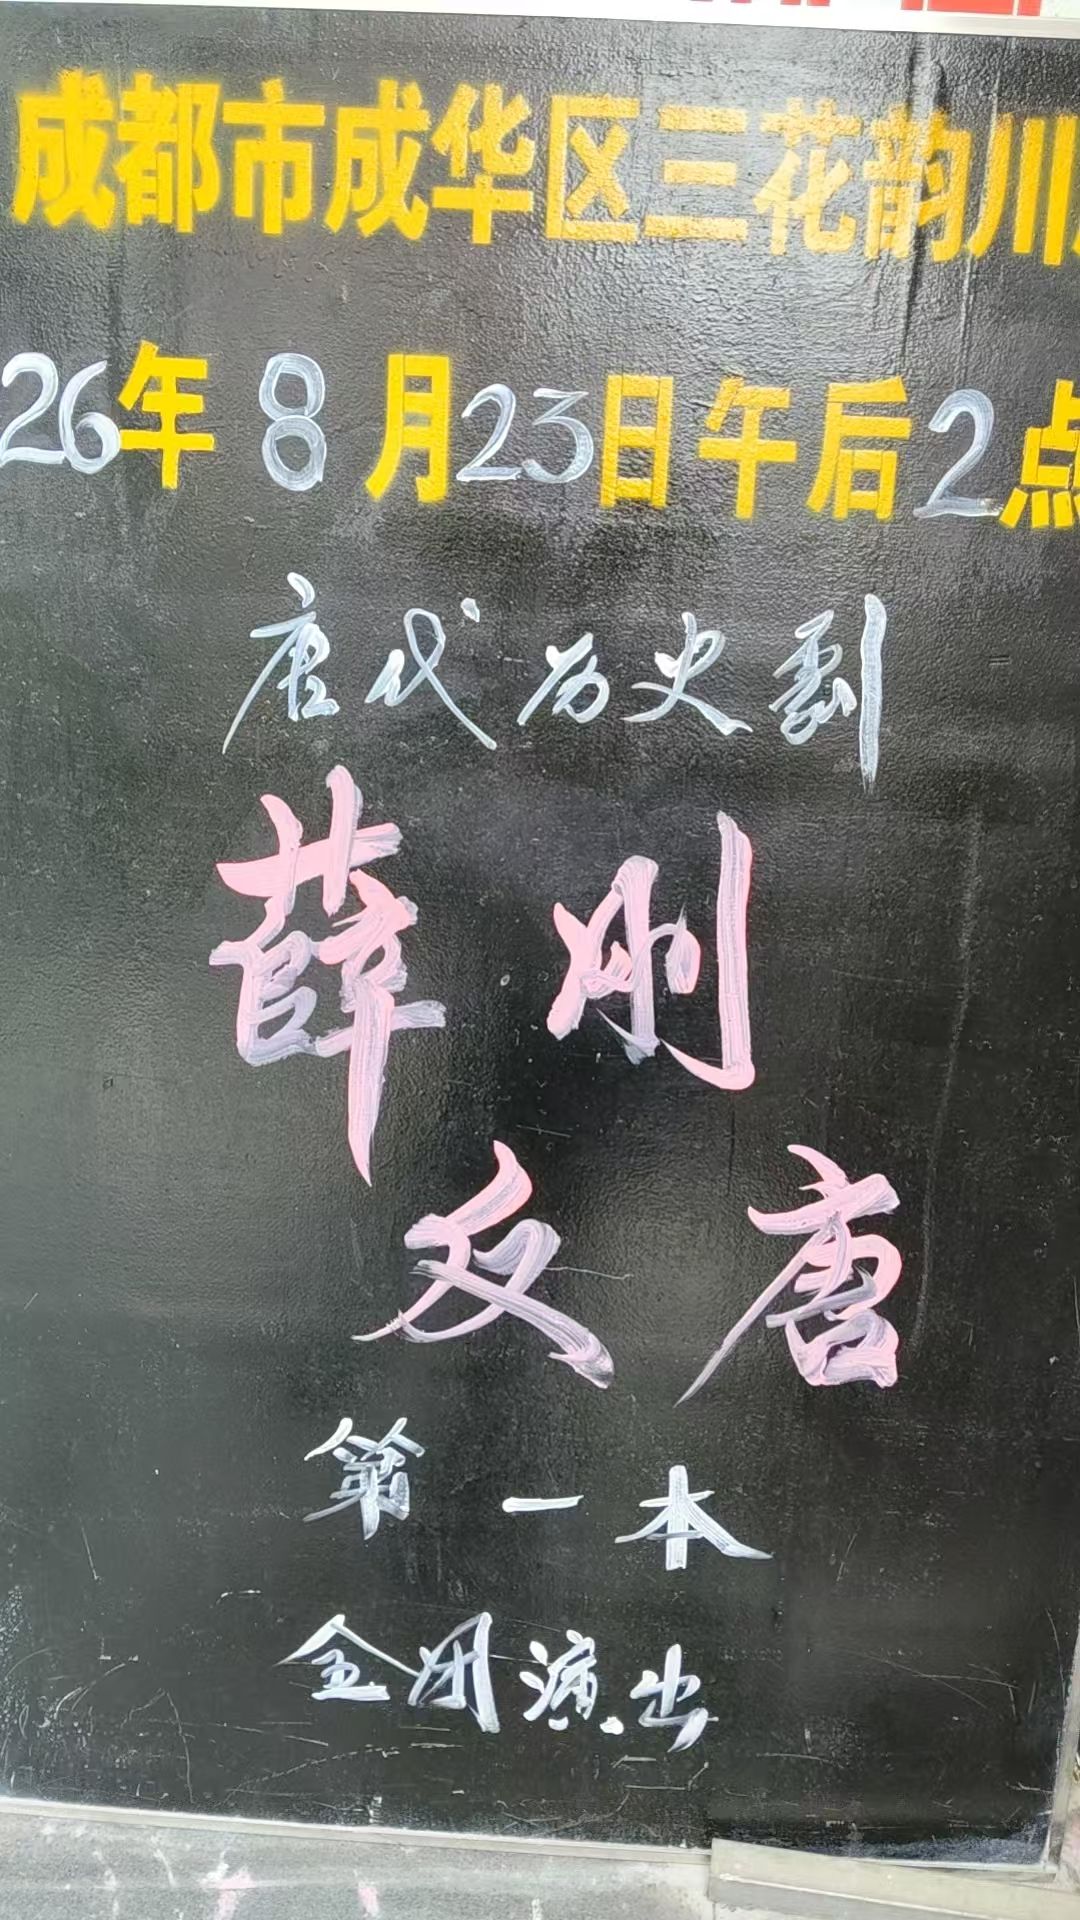 成都市成华区三花韵川
26年8月23日午后2点
唐代历史剧
薛刚
反唐
第一本
全团演出